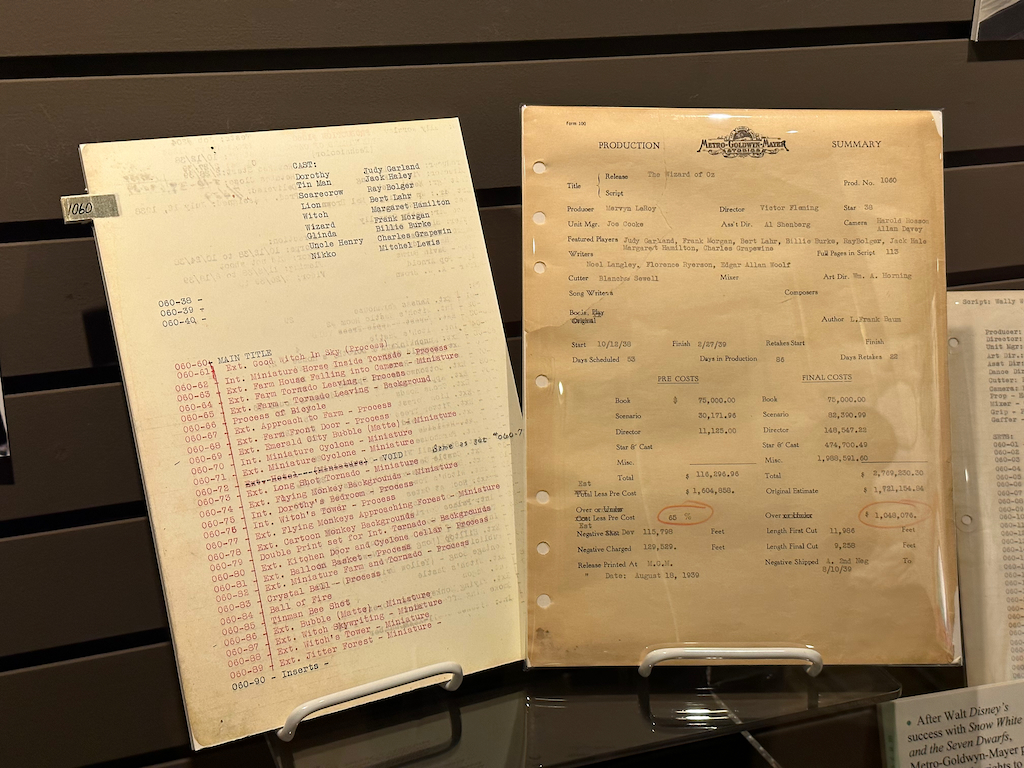 1060
CAST:
Dorothy Judy Garland
Tin Man Jack Haley
Scarecrow Ray Bolger
Lion Bert Lahr
Witch Margaret Hamilton
Wizard Frank Morgan
Glinda Billie Burke
Uncle Henry Charles Grapewin
Nikko Mitchel Lewis
060-38 -
060-39 -
060-40 -
MAIN TITLE
060-60 Ext. Good Witch In Sky (Process)
060-61 Int. Miniature Horse Inside Tornado - Process
060-62 Ext. Farm House Falling into Camera - Miniature
060-63 Ext. Farm Tornado Leaving - Process
060-64 Ext. Farm - Tornado Leaving - Background
060-65 Process of Bicycle
060-66 Ext. Approach to Farm - Process
060-67 Ext. Farm Front Door - Process
060-68 Ext. Emerald City Bubble (Matte) - Miniature
060-69 Int. Miniature Cyclone - Miniature
060-70 Ext. Miniature Cyclone - Miniature
060-71 Ext. Hotel - (Miniature) - VOID Same as set "060-7
060-72 Ext. Long Shot Tornado - Miniature
060-73 Ext. Flying Monkey Backgrounds - Miniature
060-74 Int. Dorothy's Bedroom - Process
060-75 Int. Witch's Tower - Process
060-76 Ext. Flying Monkeys Approaching Forest - Miniature
060-77 Ext. Cartoon Monkey Backgrounds
060-78 Double Print set for Int. Tornado - Backgrounds
060-79 Ext. Kitchen Door and Cyclone Cellar - Process
060-80 Ext. Balloon Basket - Process
060-81 Ext. Miniature Farm and Tornado - Process
060-82 Crystal Ball - Process
060-83 Ball of Fire
060-84 Tinman Bee Shot
060-85 Ext. Bubble (Matte) - Miniature
060-86 Ext. Witch Skywriting - Miniature
060-87 Ext. Witch's Tower - Miniature
060-88 Ext. Jitter Forest - Miniature -
060-89
060-90 - Inserts -
Form 100
PRODUCTION METRO-GOLDWYN-MAYER STUDIOS SUMMARY
Title Release The Wizard of Oz Prod. No. 1060
Script
Producer Mervyn LeRoy Director Victor Fleming Star 38
Unit Mgr. Joe Cooke Ass't Dir. Al Shenberg Camera Harold Rosson
Allan Davey
Featured Players Judy Garland, Frank Morgan, Bert Lahr, Billie Burke, RayBolger, Jack Hale
Margaret Hamilton, Charles Grapewine
Writers Full Pages in Script 113
Noel Langley, Florence Ryerson, Edgar Allan Woolf
Cutter Blanche Sewell Mixer Art Dir. Wm. A. Horning
Song Writers Composers
Book, Play
Original Author L.Frank Baum
Start 10/12/38 Finish 2/27/39 Retakes Start Finish
Days Scheduled 53 Days in Production 86 Days Retakes 22
PRE COSTS FINAL COSTS
Book $ 75,000.00 Book 75,000.00
Scenario 30,171.96 Scenario 82,390.99
Director 11,125.00 Director 148,547.22
Star & Cast Star & Cast 474,700.49
Misc. Misc. 1,988,591.60
Total $ 116,296.96 Total $ 2,769,230.30
Est
Total Less Pre Cost $ 1,604,858. Original Estimate $ 1,721,154.84
Over or Under
Cost Less Pre Cost 65 % Over or Under $ 1,048,076.
Est
Negative Shot Dev 115,798 Feet Length First Cut 11,986 Feet
Negative Charged 129,529. Feet Length Final Cut 9,238 Feet
Release Printed At M.G.M. Negative Shipped A. 2nd Neg To
" Date: August 18, 1939 8/10/39
Script: Wally W
Producer:
Director:
Unit Mgr:
Art Dir.
Asst Dir
Dance Di
Cutter:
Camera
Prop - H
Mixer -
Grip - J
Gaffer -
SETS:
060-01
• After Walt Disney's
success with Snow White
and the Seven Dwarfs,
Metro-Goldwyn-Mayer p